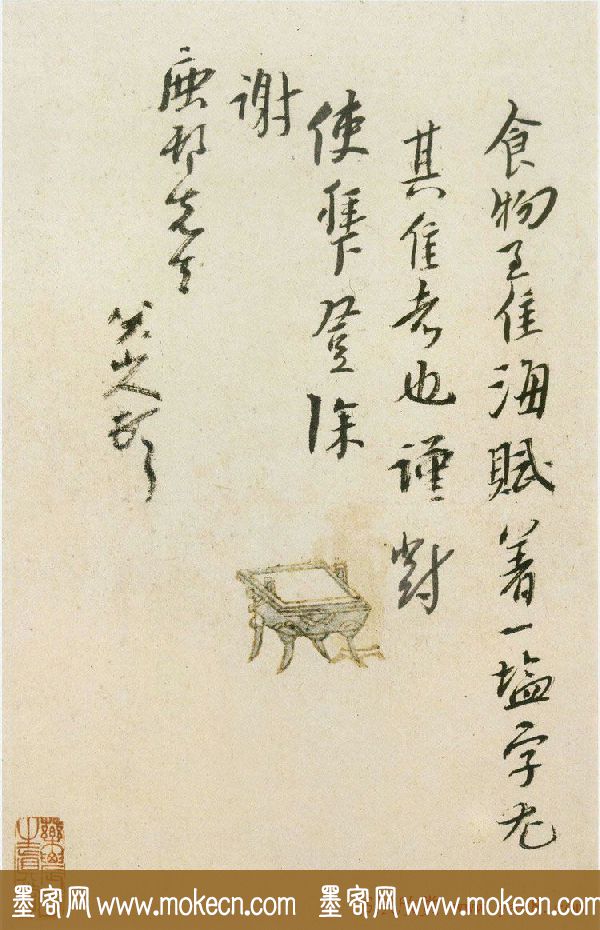 食物至佳海賦着一塩字尤
其佳者也謹對
使拜登深
謝
鹿邨先生
八大山人頓
墨客网 www.mokecn.com 墨客网 www.mokecn.com